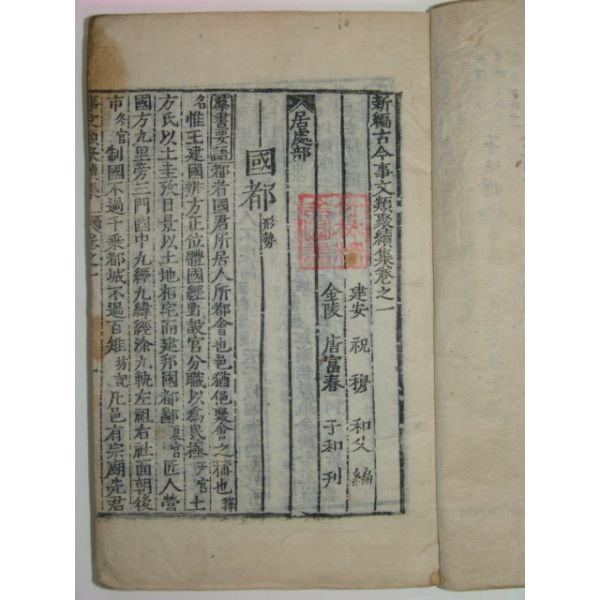 新編古今事文類聚續集卷之一
建安 祝穆 和父 編
金陵 唐富春 子和 刊
居處部
國都 形勢
羣書要語都者國君所居人所都會也邑猶俋聚會之稱也 釋
名 惟王建國辨方正位體國經野設官分職以爲民極 天官 土
方氏以土圭致日景以土地相宅而建邦國都鄙 夏官 匠人營
國方九里旁三門國中九經九緯經涂九軌左祖右社面朝後
市 冬官 制國不過千乘都城不過百雉 坊記 凡邑有宗廟先君
事文類聚續集 卷之一